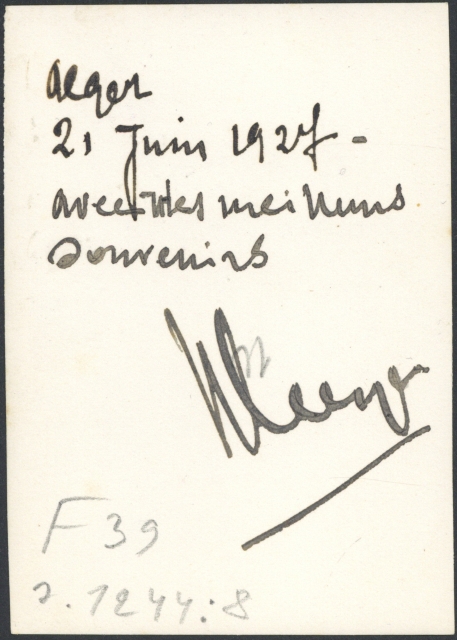 Alger
21 Juin 1927 -
avec mes meilleurs
souvenirs
F 39
2.1244:8